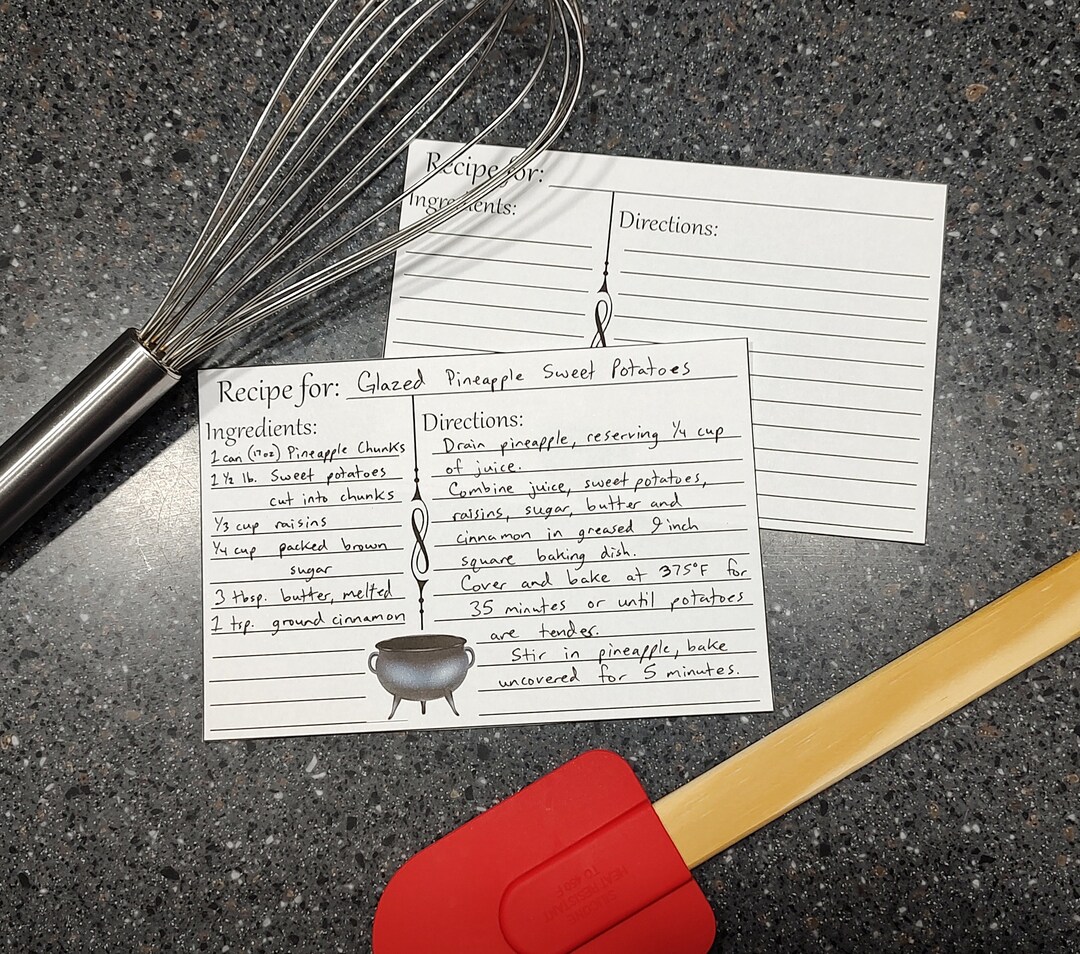 Recipe for:
Ingredients:
Directions:
Recipe for: Glazed Pineapple Sweet Potatoes
Ingredients:
1 can (17oz) Pineapple Chunks
1 1/2 lb. Sweet potatoes
cut into chunks
1/3 cup raisins
1/4 cup packed brown
sugar
3 tbsp. butter, melted
1 tsp. ground cinnamon
Directions:
Drain pineapple, reserving 1/4 cup
of juice.
Combine juice, sweet potatoes,
raisins, sugar, butter and
cinnamon in greased 9 inch
square baking dish.
Cover and bake at 375°F for
35 minutes or until potatoes
are tender.
Stir in pineapple, bake
uncovered for 5 minutes.
SILICONE
HEAT RESISTANT